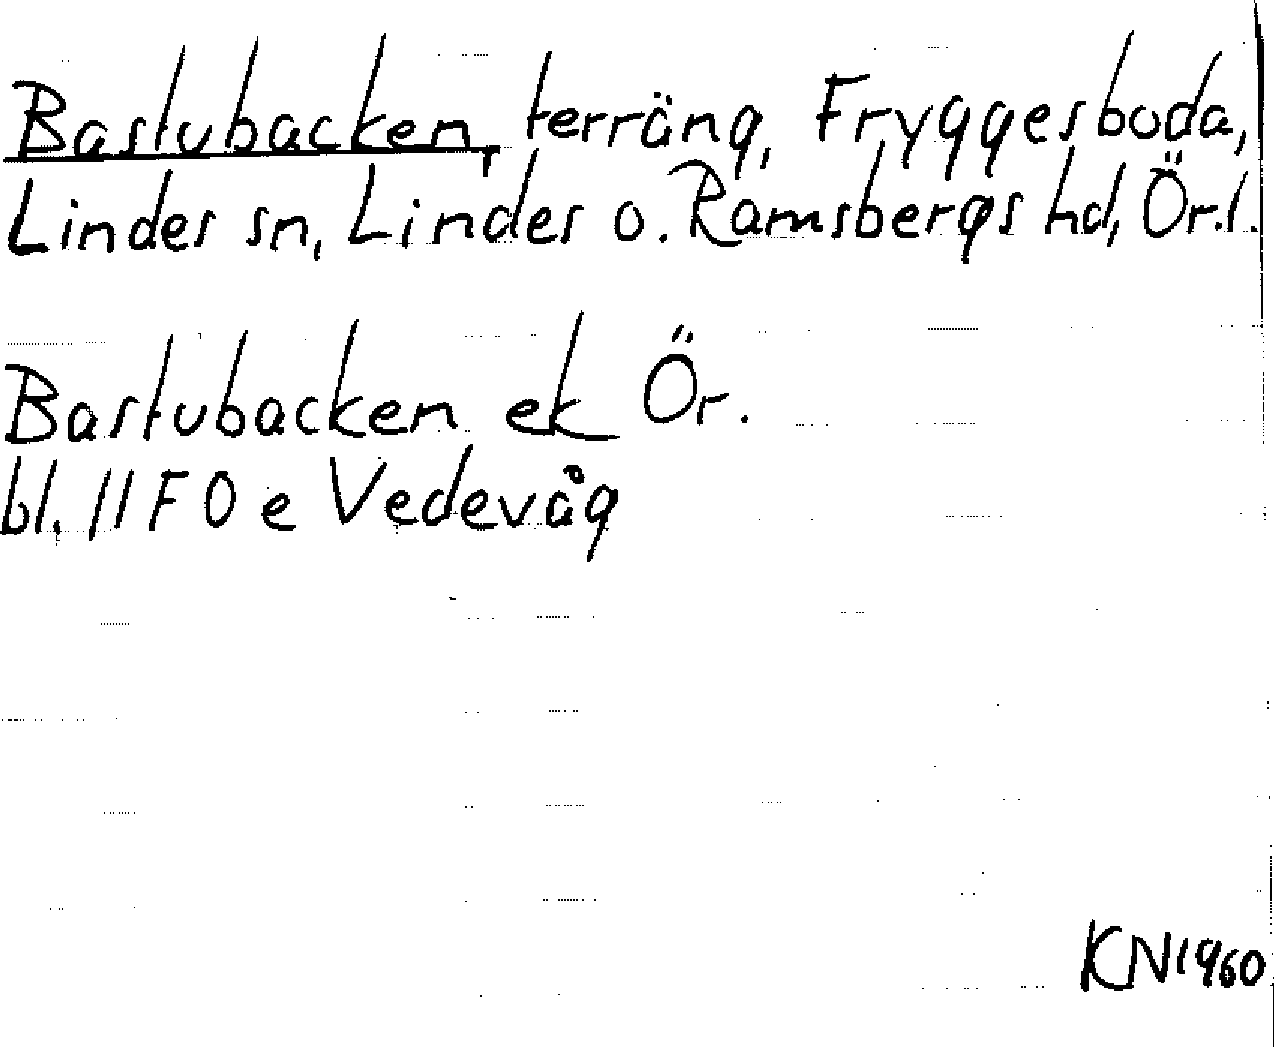 Bastubacken, terräng, Fryggesboda,
Lindes sn, Lindes o. Ramsbergs hd, Ör.l.
Bastubacken ek Ör.
bl. 11F0e Vedevåg
KN1960